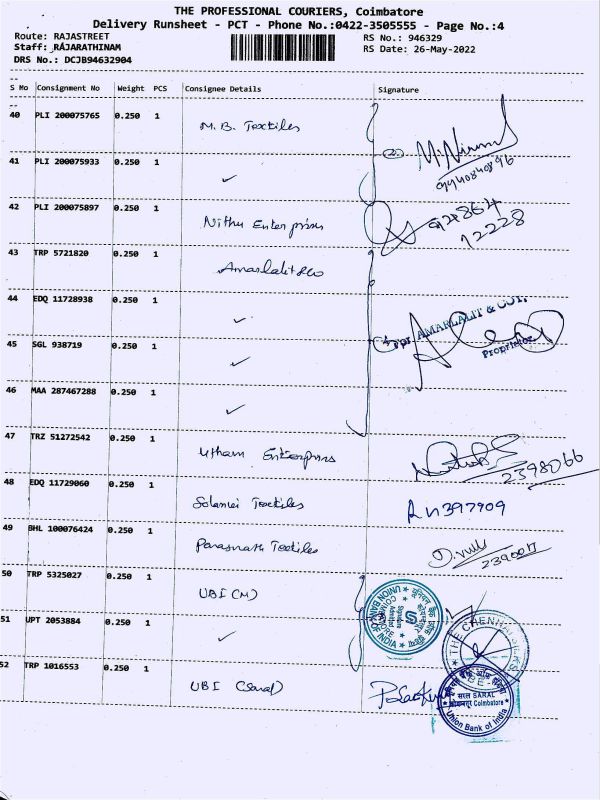 THE PROFESSIONAL COURIERS, Coimbatore
Delivery Runsheet - PCT - Phone No.:0422-3505555 - Page No.:4
Route: RAJASTREET
RS No.: 946329
Staff: RAJARATHINAM
RS Date: 26-May-2022
DRS No.: DCJB94632904
S No Consignment No Weight PCS Consignee Details Signature
40 PLI 200075765 0.250 1 M.B. Textiles
M. Nirmal
9940840896
41 PLI 200075933 0.250 1 ✓
42 PLI 200075897 0.250 1 Nithu Enterprises
12228
43 TRP 5721820 0.250 1 Amarlalit & Co
44 EDQ 11728938 0.250 1 ✓
AMARLALIT & COY.
45 SGL 938719 0.250 1 ✓
Proprietor
46 MAA 287467288 0.250 1 ✓
47 TRZ 51272542 0.250 1 Uttam Enterprises
2398066
48 EDQ 11729060 0.250 1 Solanki Textiles
397909
49 BHL 100076424 0.250 1 Parasnath Textiles
50 TRP 5325027 0.250 1 UBI (M)
UNION BANK OF INDIA
51 UPT 2053884 0.250 1 ✓
THE CHENNAI
52 TRP 1016553 0.250 1 UBI (Saral)
सरल SARAL
कोयम्बतूर Coimbatore
Union Bank of India